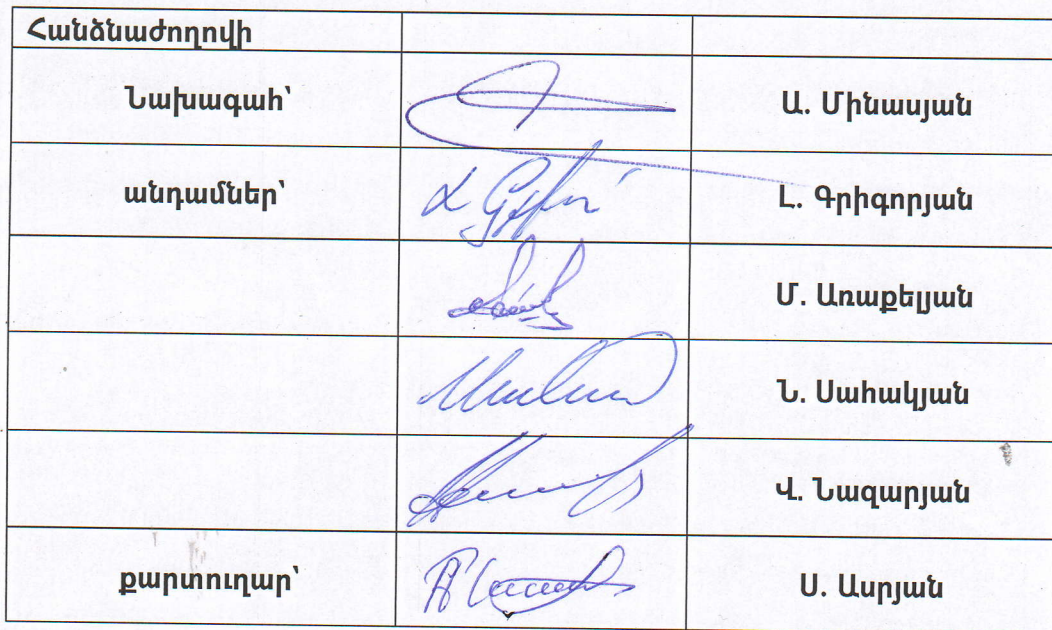 Հանձնաժողովի
Նախագահ՝ Ա. Մինասյան
անդամներ՝ Լ. Գրիգորյան
Մ. Առաքելյան
Ն. Սահակյան
Վ. Նազարյան
քարտուղար՝ Ս. Ասրյան